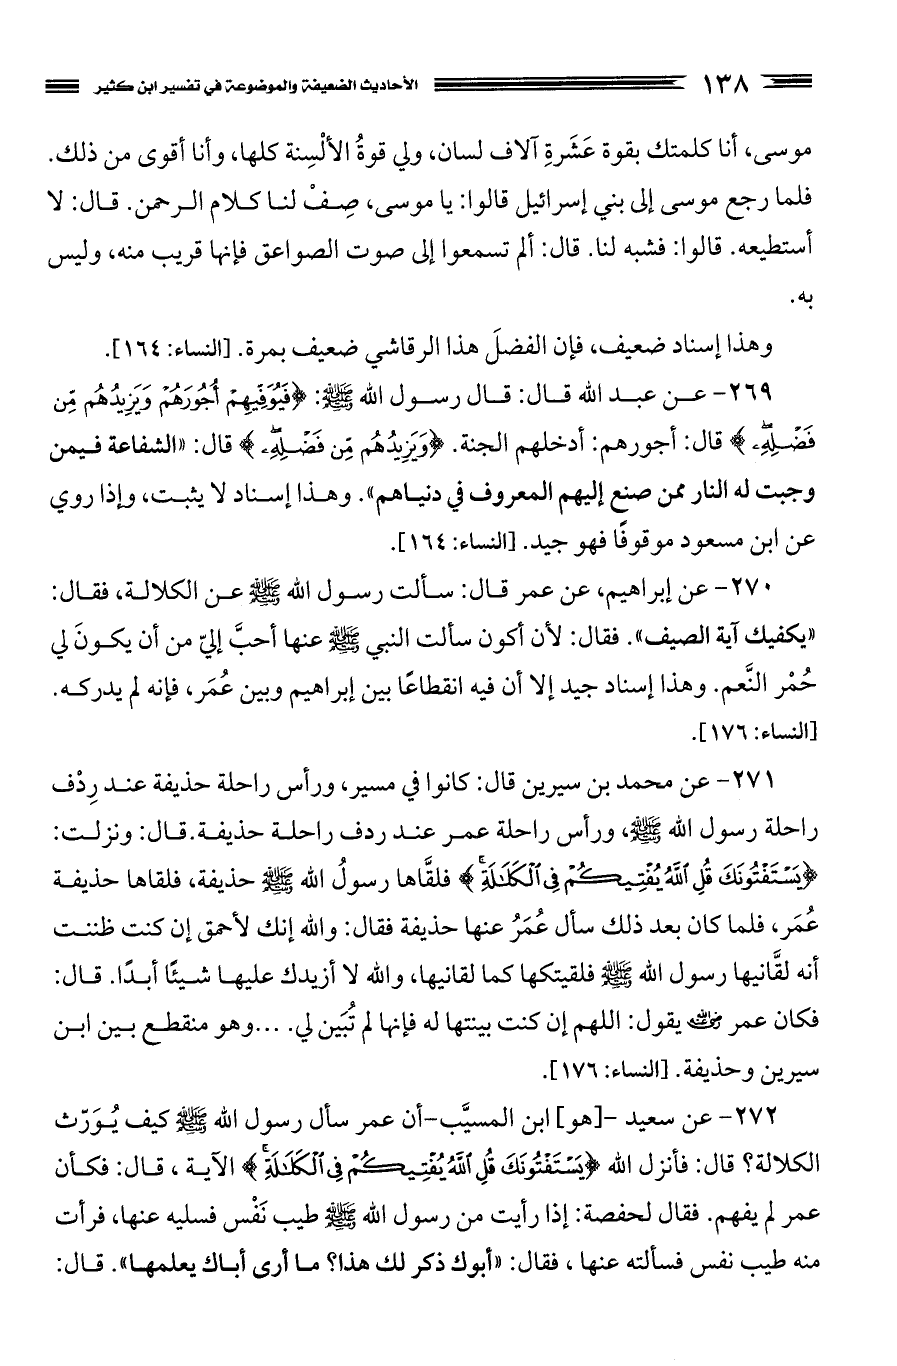 ١٣٨ الأحاديث الضعيفة والموضوعة في تفسير ابن كثير
موسى، أنا كلمتك بقوة عَشَرةِ آلاف لسان، ولي قوةُ الألْسِنة كلها، وأنا أقوى من ذلك.
فلما رجع موسى إلى بني إسرائيل قالوا: يا موسى، صِفْ لنا كلام الرحمن. قال: لا
أستطيعه. قالوا: فشبه لنا. قال: ألم تسمعوا إلى صوت الصواعق فإنها قريب منه، وليس
به.
وهذا إسناد ضعيف، فإن الفضلَ هذا الرقاشي ضعيف بمرة. [النساء: ١٦٤].
٢٦٩- عن عبد الله قال: قال رسول الله ﷺ: ﴿فَيُوَفِّيهِمْ أُجُورَهُمْ وَيَزِيدُهُم مِّن
فَضْلِهِۦ﴾ قال: أجورهم: أدخلهم الجنة. ﴿وَيَزِيدُهُم مِّن فَضْلِهِۦ﴾ قال: «الشفاعة فيمن
وجبت له النار ممن صنع إليهم المعروف في دنياهم». وهذا إسناد لا يثبت، وإذا روي
عن ابن مسعود موقوفًا فهو جيد. [النساء: ١٦٤].
٢٧٠- عن إبراهيم، عن عمر قال: سألت رسول الله ﷺ عن الكلالة، فقال:
«يكفيك آية الصيف». فقال: لأن أكون سألت النبي ﷺ عنها أحبَّ إليّ من أن يكونَ لي
حُمْر النَّعم. وهذا إسناد جيد إلا أن فيه انقطاعًا بين إبراهيم وبين عُمَر، فإنه لم يدركه.
[النساء: ١٧٦].
٢٧١- عن محمد بن سيرين قال: كانوا في مسير، ورأس راحلة حذيفة عند رِدْف
راحلة رسول الله ﷺ، ورأس راحلة عمر عند ردف راحلة حذيفة.قال: ونزلت:
﴿يَسْتَفْتُونَكَ قُلِ ٱللَّهُ يُفْتِيكُمْ فِى ٱلْكَلَٰلَةِ ۚ﴾ فلقَّاها رسولُ الله ﷺ حذيفة، فلقاها حذيفة
عُمَر، فلما كان بعد ذلك سأل عُمَرُ عنها حذيفة فقال: والله إنك لأحمق إن كنت ظننت
أنه لقَّانيها رسول الله ﷺ فلقيتكها كما لقانيها، والله لا أزيدك عليها شيئًا أبدًا. قال:
فكان عمر رضي الله عنه يقول: اللهم إن كنت بينتها له فإنها لم تُبَين لي. ...وهو منقطع بين ابن
سيرين وحذيفة. [النساء: ١٧٦].
٢٧٢- عن سعيد -[هو] ابن المسيَّب-أن عمر سأل رسول الله ﷺ كيف يُوَرّث
الكلالة؟ قال: فأنزل الله ﴿يَسْتَفْتُونَكَ قُلِ ٱللَّهُ يُفْتِيكُمْ فِى ٱلْكَلَٰلَةِ ۚ﴾ الآية ، قال: فكأن
عمر لم يفهم. فقال لحفصة: إذا رأيت من رسول الله ﷺ طيب نَفْس فسليه عنها، فرأت
منه طيب نفس فسألته عنها ، فقال: «أبوك ذكر لك هذا؟ ما أرى أباك يعلمها». قال: